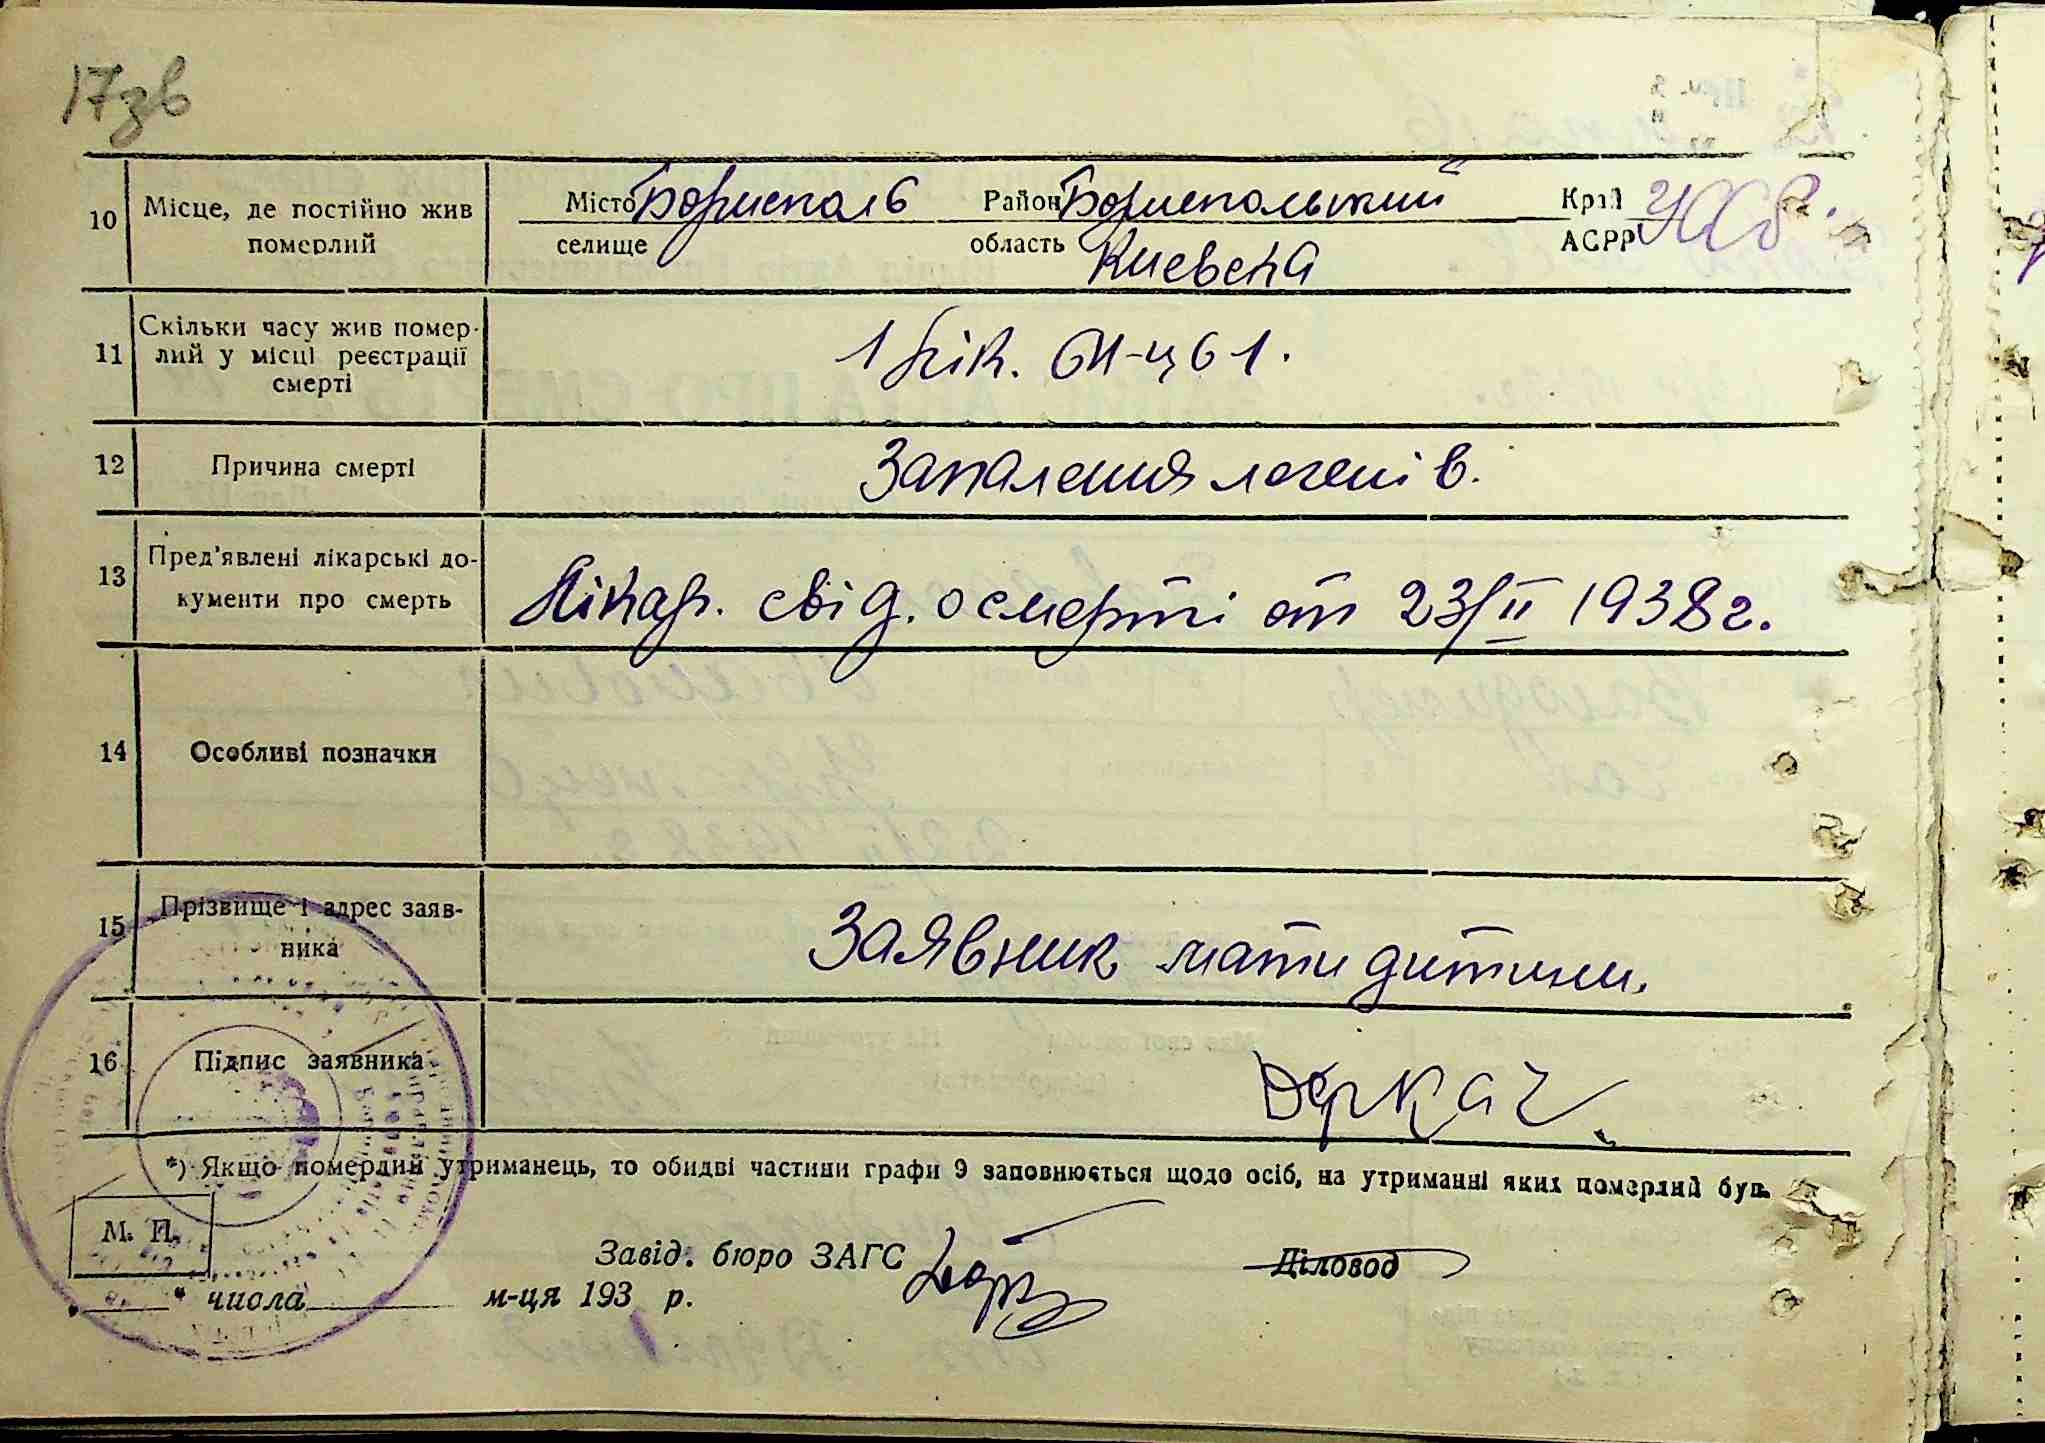 17зв
10 Місце, де постійно жив померлий
Місто Бориспаль Район Бориспольский Край
селище область Киевска АСРР
11 Скільки часу жив помер-
лий у місці реєстрації
смерті
1 рік.
12 Причина смерті Запалення легенів.
13 Пред'явлені лікарські до-
кументи про смерть
Лікар. свід. о смерті от 23/II 1938 г.
14 Особливі позначки
15 Прізвище і адрес заяв-
ника
Заявник мати дитини.
16 Підпис заявника Деркач.
*) Якщо померлий утриманець, то обидві частини графи 9 заповнюється щодо осіб, на утриманні яких померлий був.
М. П.
Завід. бюро ЗАГС Діловод
" " числа м-ця 193 р.